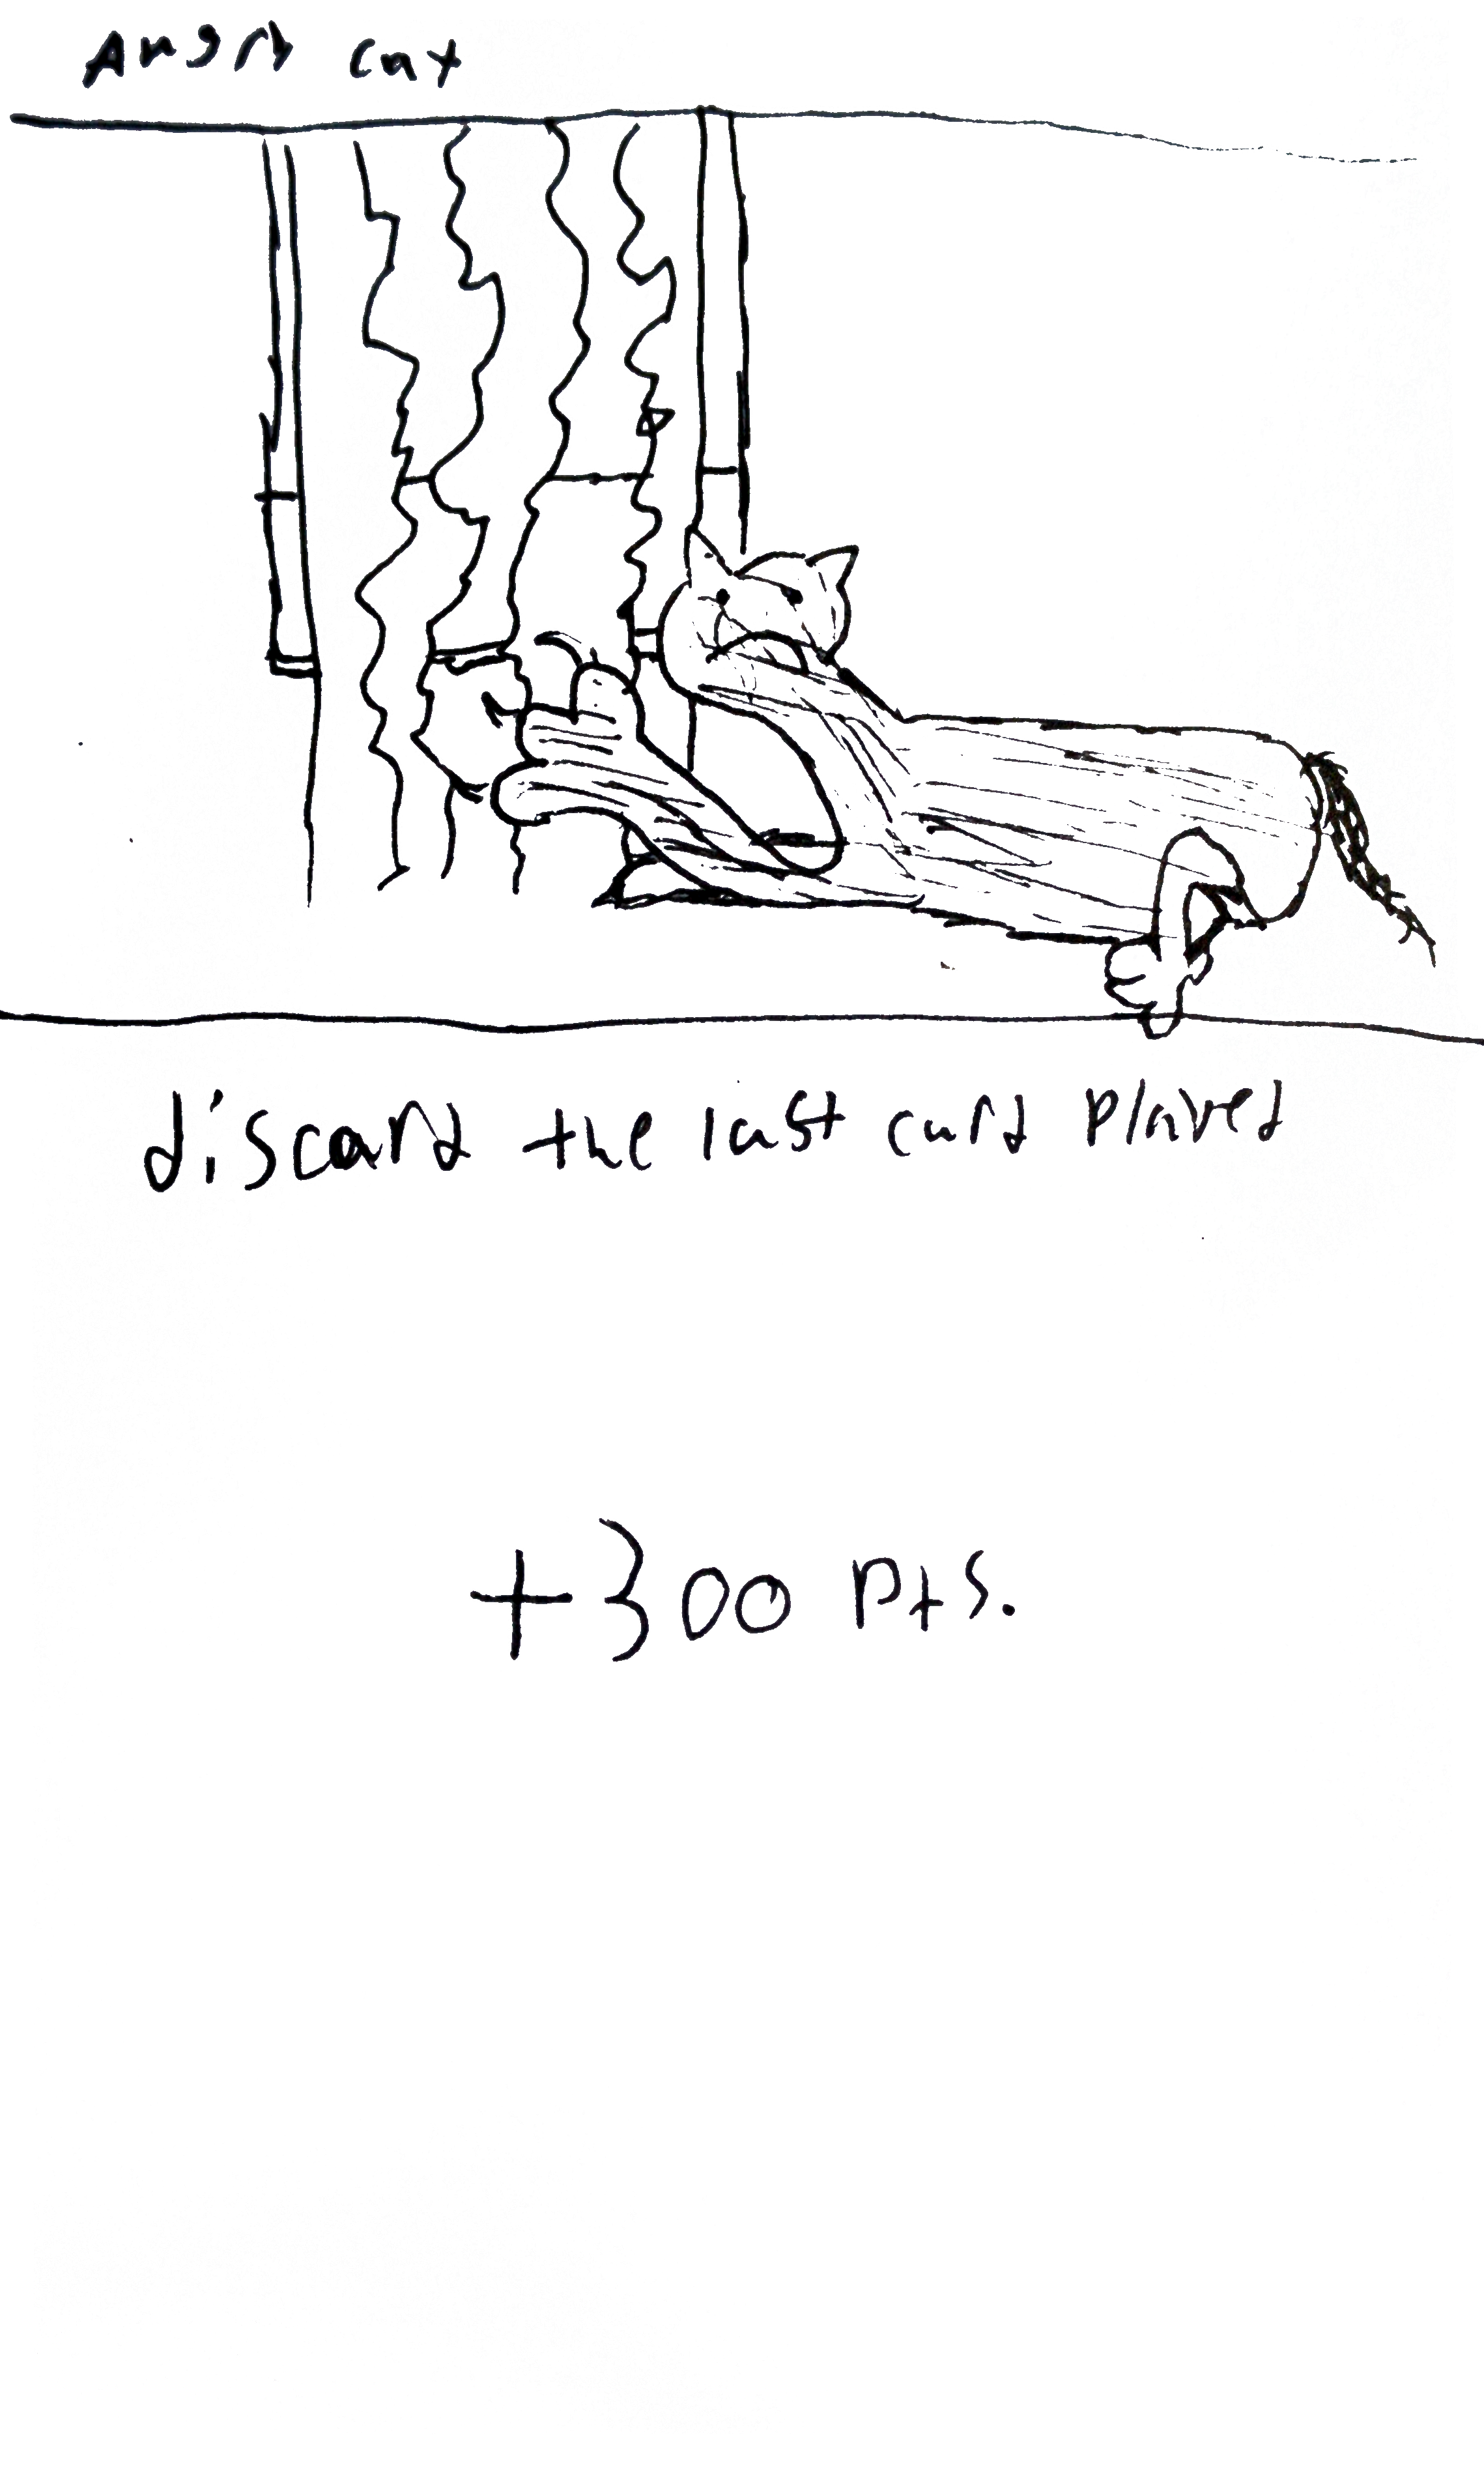 Angry cat
discard the last card played
+300 pts.